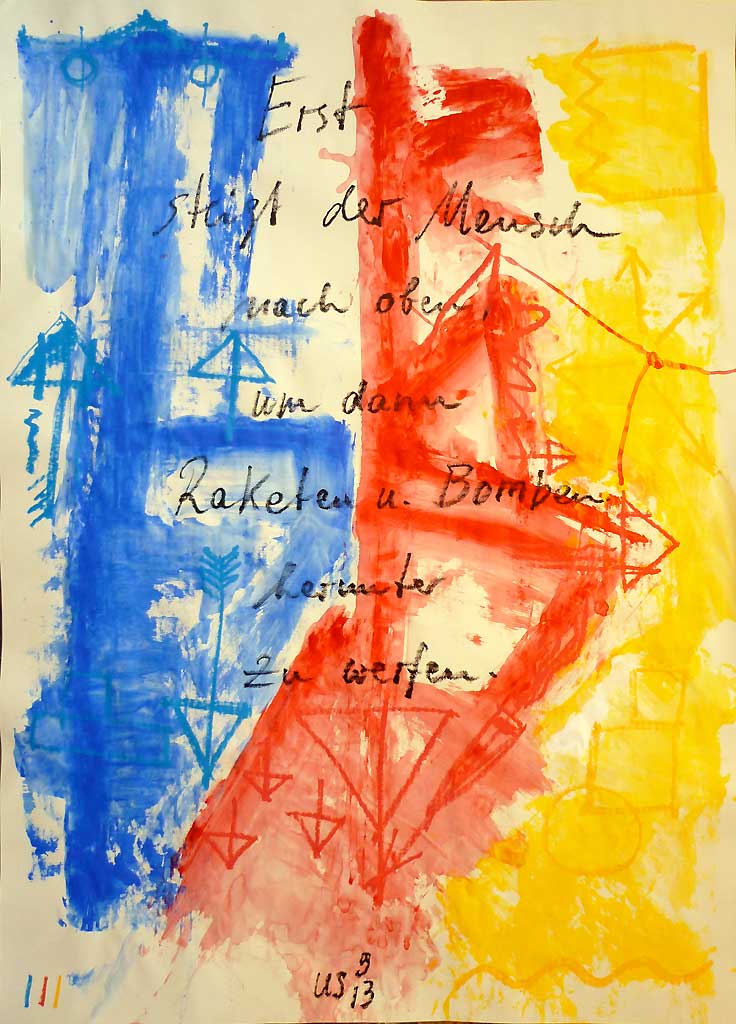 Erst
steigt der Mensch
nach oben,
um dann
Raketen u. Bomben
herunter
zu werfen.
US 9
13